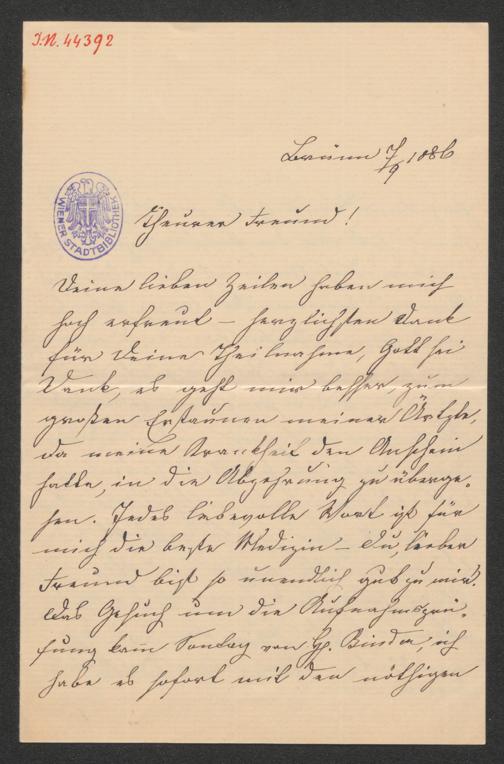 I.N. 44392
Brünn 7/9 1886
WIENER STADTBIBLIOTHEK
Theurer Freund!
Deine lieben Zeilen haben mich
hoch erfreut – herzlichsten Dank
für Deine Theilnahme, Gott sei
Dank, es geht mir besser, zum
großen Erstaunen meiner Ärtzte,
da meine Krankheit den Anschein
hatte, in die Abzehrung zu überge-
hen. Jedes liebevolle Wort ist für
mich die beste Medizin – Du, lieber
Freund bist so unendlich gut zu mir.
Das Gesuch um die Aufnahmsprü-
fung kam Sontag von H. Binder, ich
habe es sofort mit den nöthigen